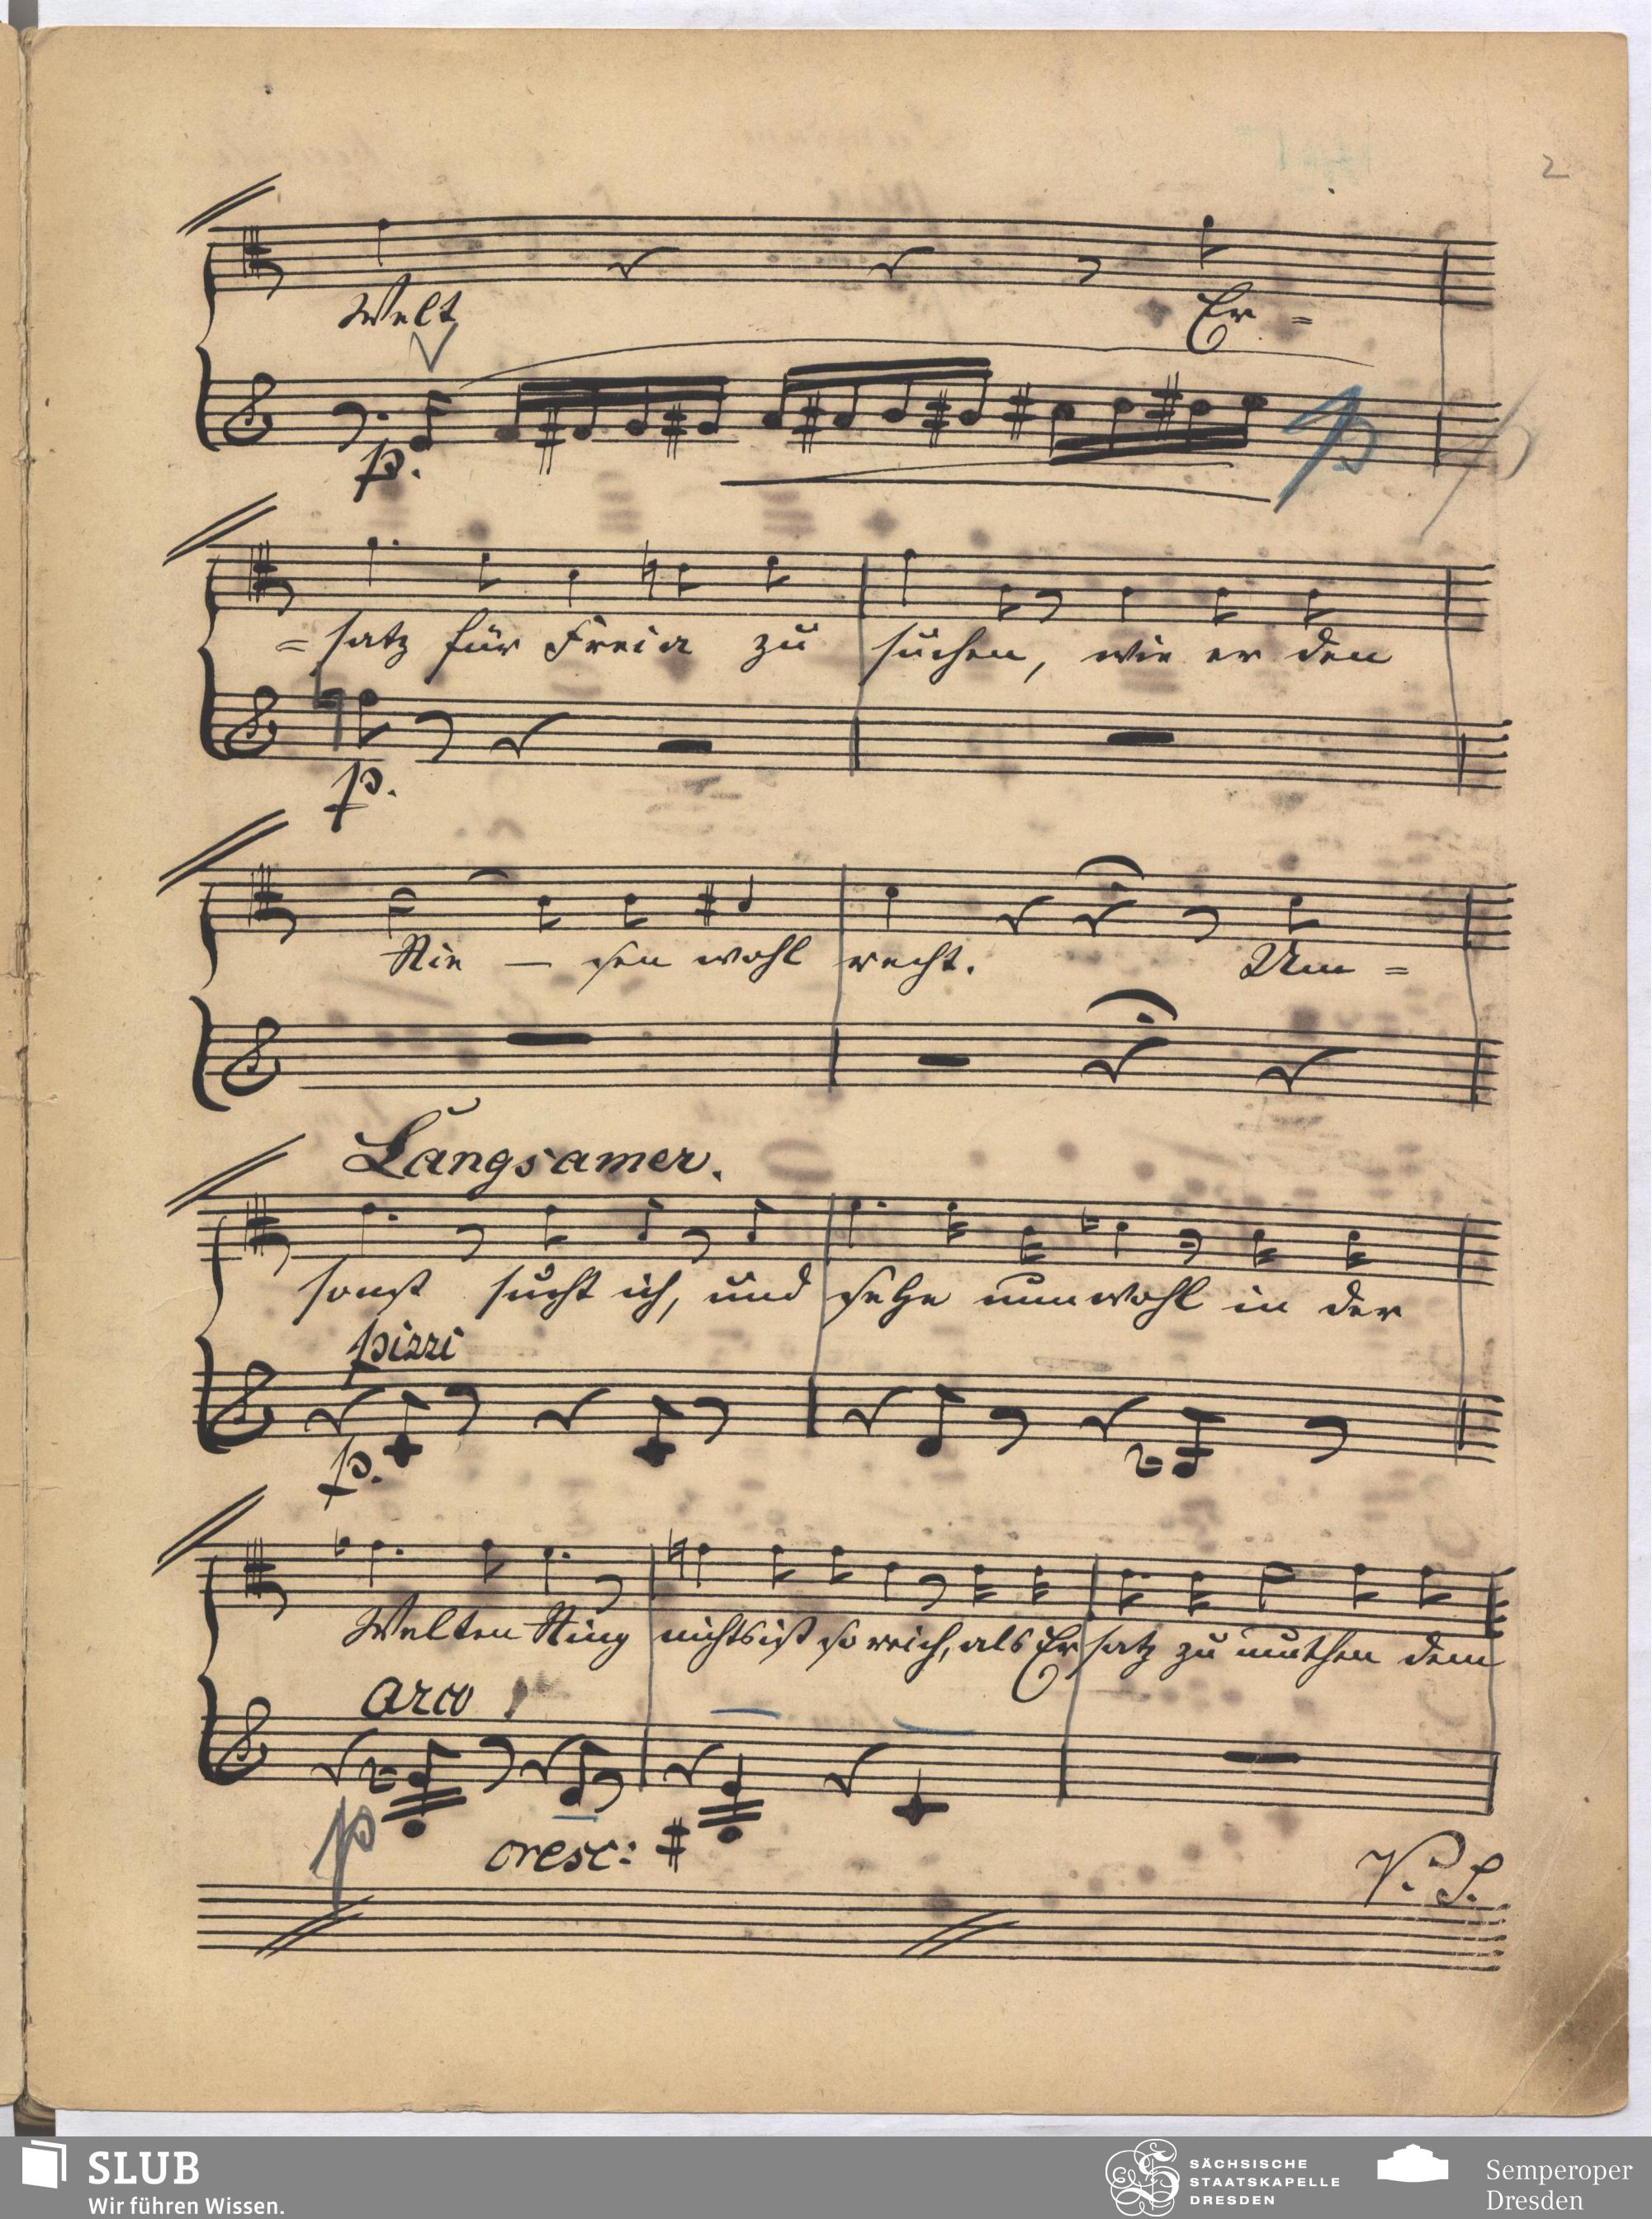 2
Welt Er =
p.
p
p
= satz für Freia zu suchen, wie er den
p.
Rie — sen wohl recht. Um =
Langsamer.
sonst sucht ich, und sehe nun wohl in der
pizzi
p.
Welten Ring nichts ist so reich, als Ersatz zu muthen dem
arco
p cresc:
V. S.
SLUB
Wir führen Wissen.
SÄCHSISCHE
STAATSKAPELLE
DRESDEN
Semperoper
Dresden